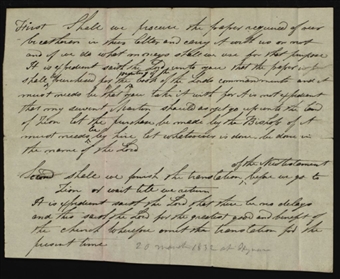 First Shall we procure the paper required of our
breatheren in thier letter and carry it with us or not
and if we do what moneys shall we use for that purpose
It is expedient saith the Lord unto you that the paper
shall be purchased for the printing of the book of the Lords commandments and it
must needs be that you take it with you for it is not expedient
that my servant Martin should as yet go up unto the land
of Zion let the purchase be made by the Bishop if it
must needs be by hire let whatsoever is done be done in
the name of the Lord
of the New testament
Second shall we finish the translation before we go to
Zion or wait till we return
It is expedient saith the Lord that there be no delays
and this saith the Lord for the greatest good and benefit of
the church wherefore omit the translation for the
present time
20 March 1832 at Hyrum